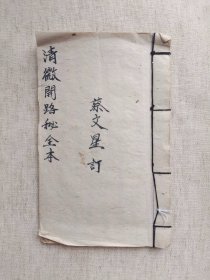 清微開路秘全本
蔡文星訂